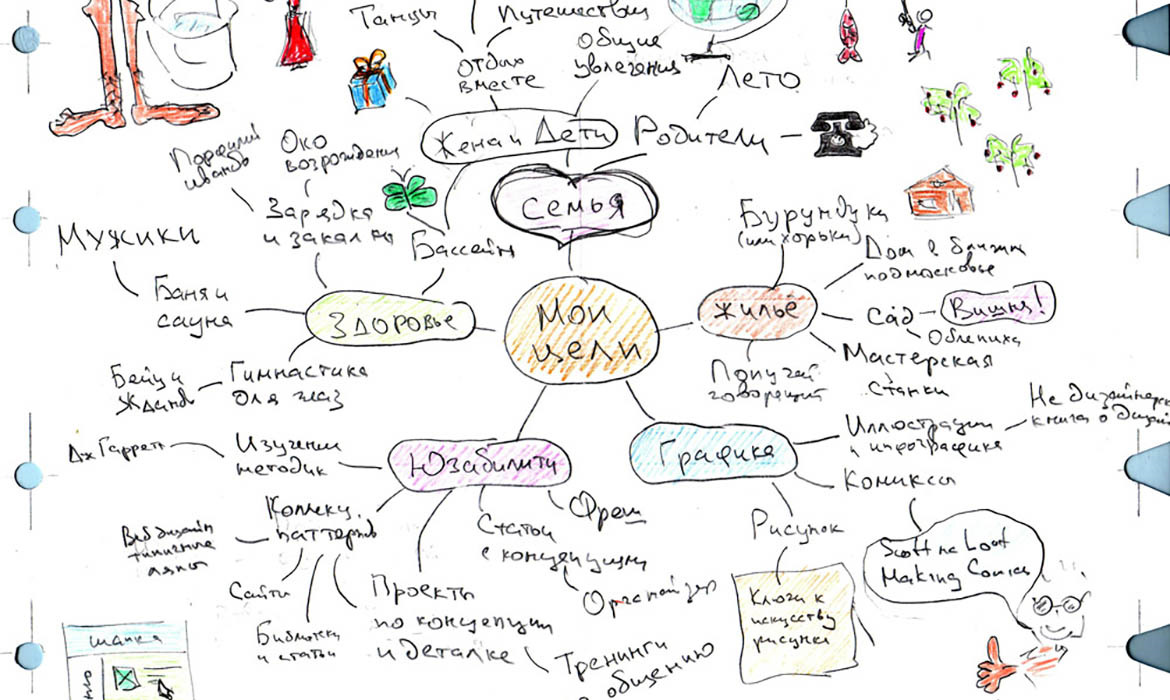 Танцы
Путешествия
Отдых
вместе
общие
увлечения
Лето
Жена и Дети
Родители
Порфирий
Иванов
Око
возрождения
семья
Мужики
Зарядка
и закалка
Бассейн
Бурундуки
(или хорьки)
Дом в ближн
подмосковье
Баня и
сауна
Здоровье
Мои
цели
Жилье
Сад
Вишня!
Облепиха
Мастерская
станки
Бейтс и
Жданов
Гимнастика
для глаз
Попугай
говорящий
Не дизайнерск
книга о дизай
Дж Гарретт
Изучение
методик
Юзабилити
Графика
Иллюстрации
и инфографика
Комиксы
Веб дизайн
типичные
Коллекц.
паттернов
Статьи
с концепциями
Фреш
Рисунок
Scott Mc Loot
Making Comics
Сайты
Библиотеки
и статьи
Проекты
по концепции
и деталке
Органайзер
Ключи к
искусству
рисунка
Тренинги
общению
шапка